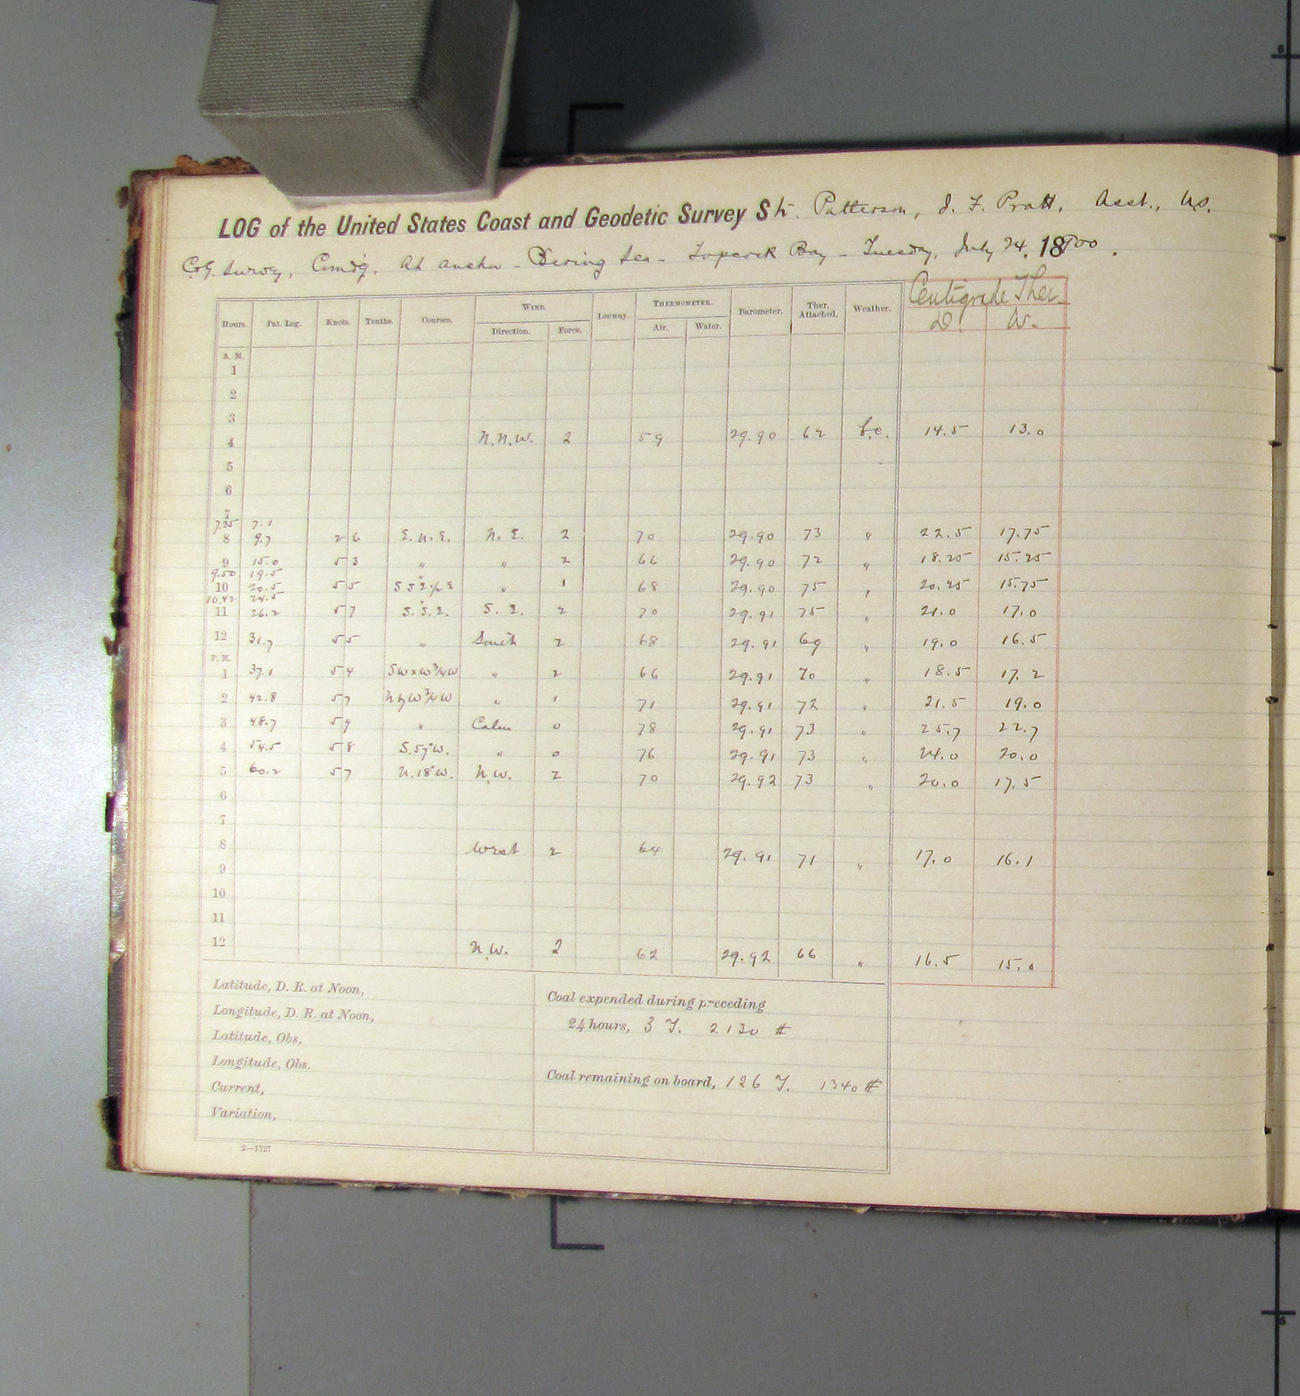 LOG of the United States Coast and Geodetic Survey Str. Patterson, J. F. Pratt, Asst., U.S.
C&G. Survey, Comd'g. At anchor - Bering Sea - Bay - Tuesday, July 24, 18900.
Centigrade Ther.
Hours. Pat. Log. Knots. Tenths. Courses. WIND. Leeway. THERMOMETER. Barometer. Ther. Attached. Weather. D. W.
Direction. Force. Air. Water.
A. M.
1
2
3
4 N.N.W. 2 59 29.90 62 b.c. 14.5 13.0
5
6
7
7.35 7.1
8 9.7 2 6 E.N.E. N.E. 2 70 29.90 73 " 22.5 17.75
9 15.0 5 3 " " 2 66 29.90 72 " 18.25 15.25
9.50 19.5
10 20.5 5 5 S S E 1/2 E " 1 68 29.90 75 " 20.25 15.75
10.42 24.5
11 26.2 5 7 S.S.E. S.E. 2 70 29.91 75 " 21.0 17.0
12 31.7 5 5 " South 2 68 29.91 69 " 19.0 16.5
P. M.
1 37.1 5 4 SWxW3/4W " 2 66 29.91 70 " 18.5 17.2
2 42.8 5 7 NbyW3/4W " 1 71 29.91 72 " 21.5 19.0
3 48.7 5 9 " Calm 0 78 29.91 73 " 25.7 22.7
4 54.5 5 8 S.57°W. " 0 76 29.91 73 " 24.0 20.0
5 60.2 5 7 N.18°W. N.W. 2 70 29.92 73 " 20.0 17.5
6
7
8 West 2 64 29.91 71 " 17.0 16.1
9
10
11
12 N.W. 2 62 29.92 66 " 16.5 15.0
Latitude, D. R. at Noon,
Longitude, D. R. at Noon,
Latitude, Obs.
Longitude, Obs.
Current,
Variation,
Coal expended during preceding
24 hours, 3 T. 2130 #
Coal remaining on board, 126 T. 1340 #
2—1727